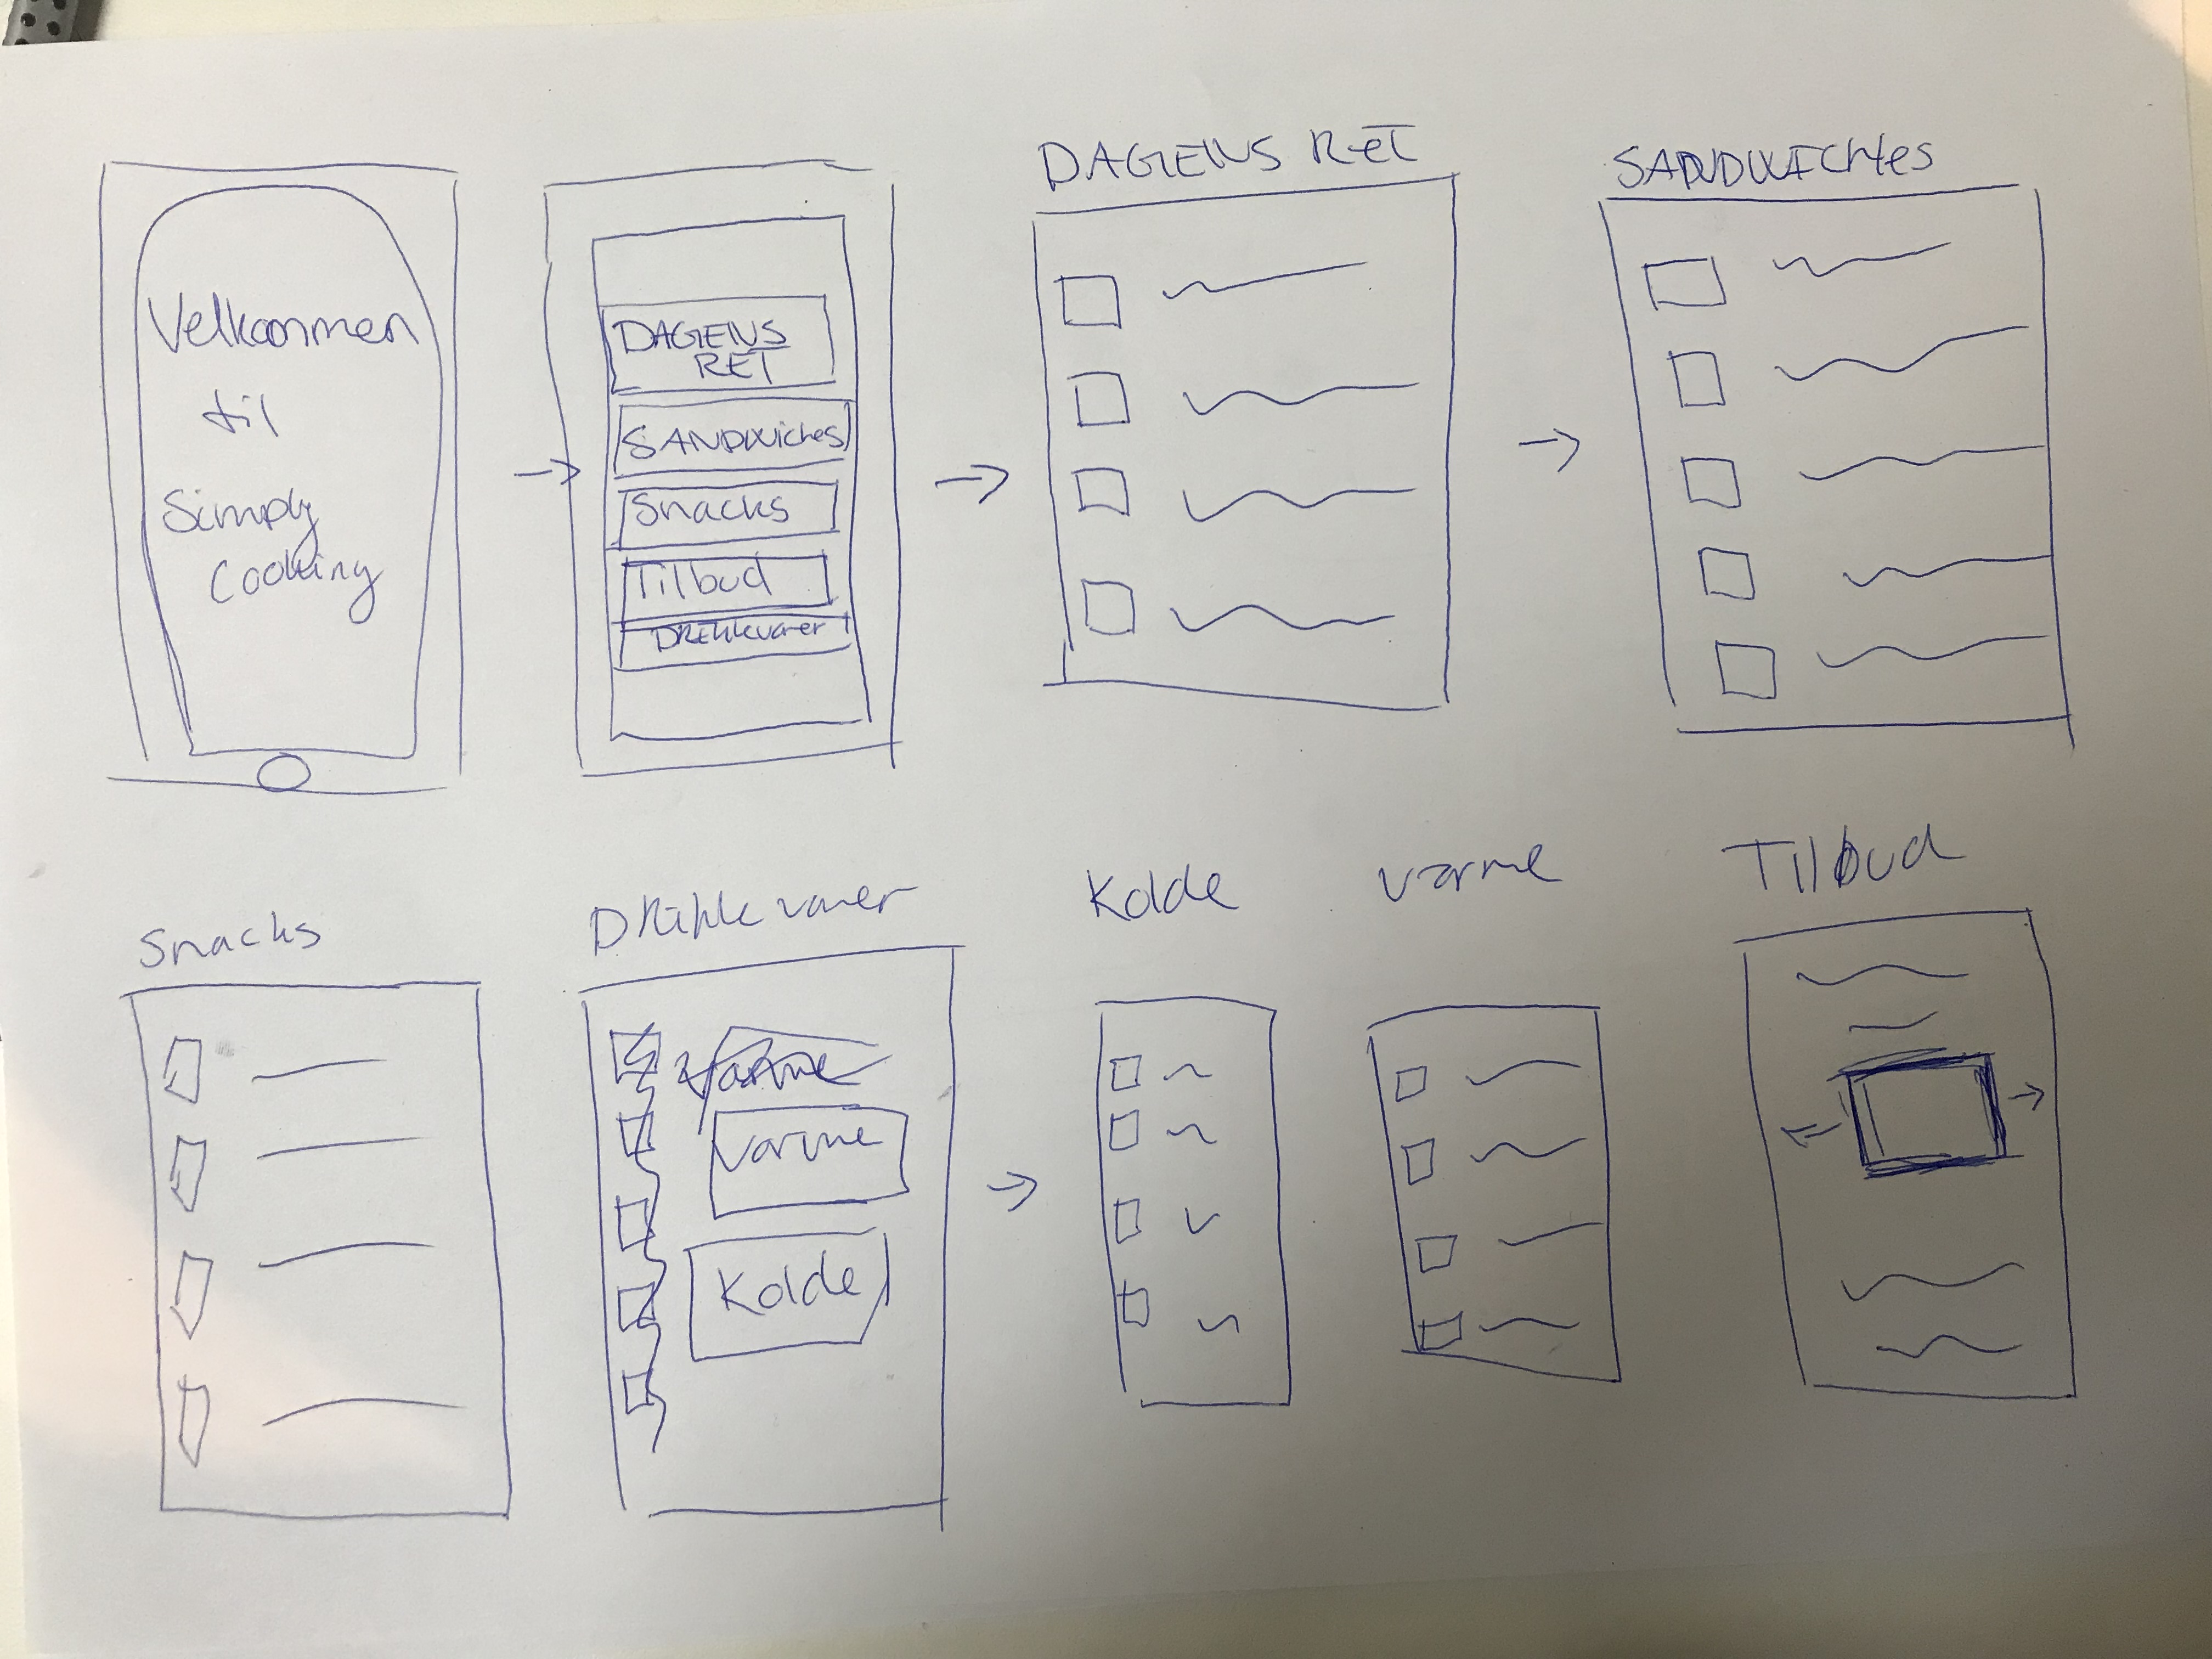 Velkommen
til
Simply
Cooking
DAGENS
RET
SANDWiches
Snacks
Tilbud
Drikkevarer
DAGENS RET
SANDWICHES
Snacks
Drikkevarer
Varme
Kolde
Kolde
varme
Tilbud